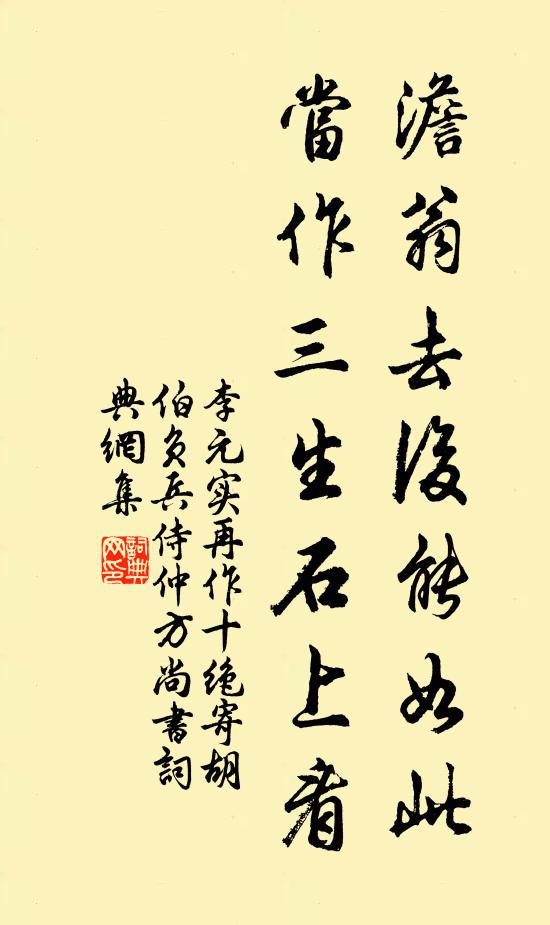 澹翁去後能如此
當作三生石上看
李元实再作十绝寄胡
伯负兵侍仲方尚書詞
典網集
詞典網印